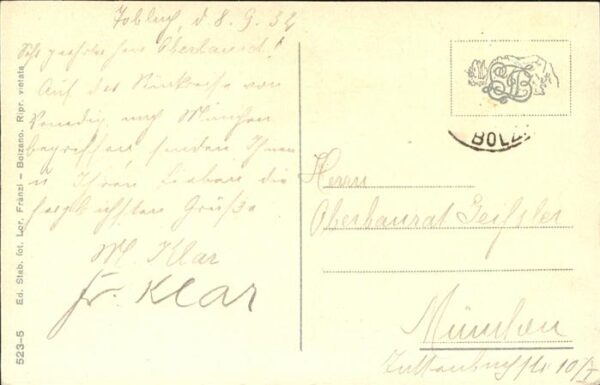 Toblach, d. 8. 9. 32
Sehr geehrter Herr Oberbaurat!
Auf der Rückreise von
Venedig nach München
begriffen senden Ihnen
u Ihren Lieben die
herzlichsten Grüße
M. Klar
Fr. Klar
523-5 Ed. Stab. fot. Lor. Fränzl – Bolzano. Ripr. vietata
BOLZ
Herrn
Oberbaurat Geißler
München
10/I